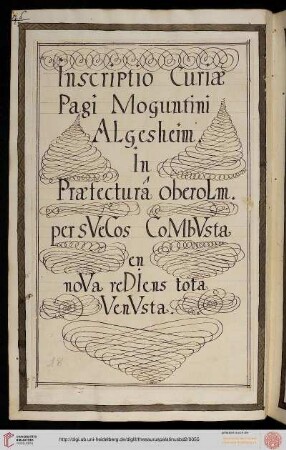 Inscriptio Curiæ
Pagi Moguntini
ALgesheim.
In
Præfecturâ oberolm.
per sVeCos CoMbVsta.
en
noVa reDIens tota
VenVsta.
http://digi.ub.uni-heidelberg.de/diglit/thesauruspalatinusbd2/0055